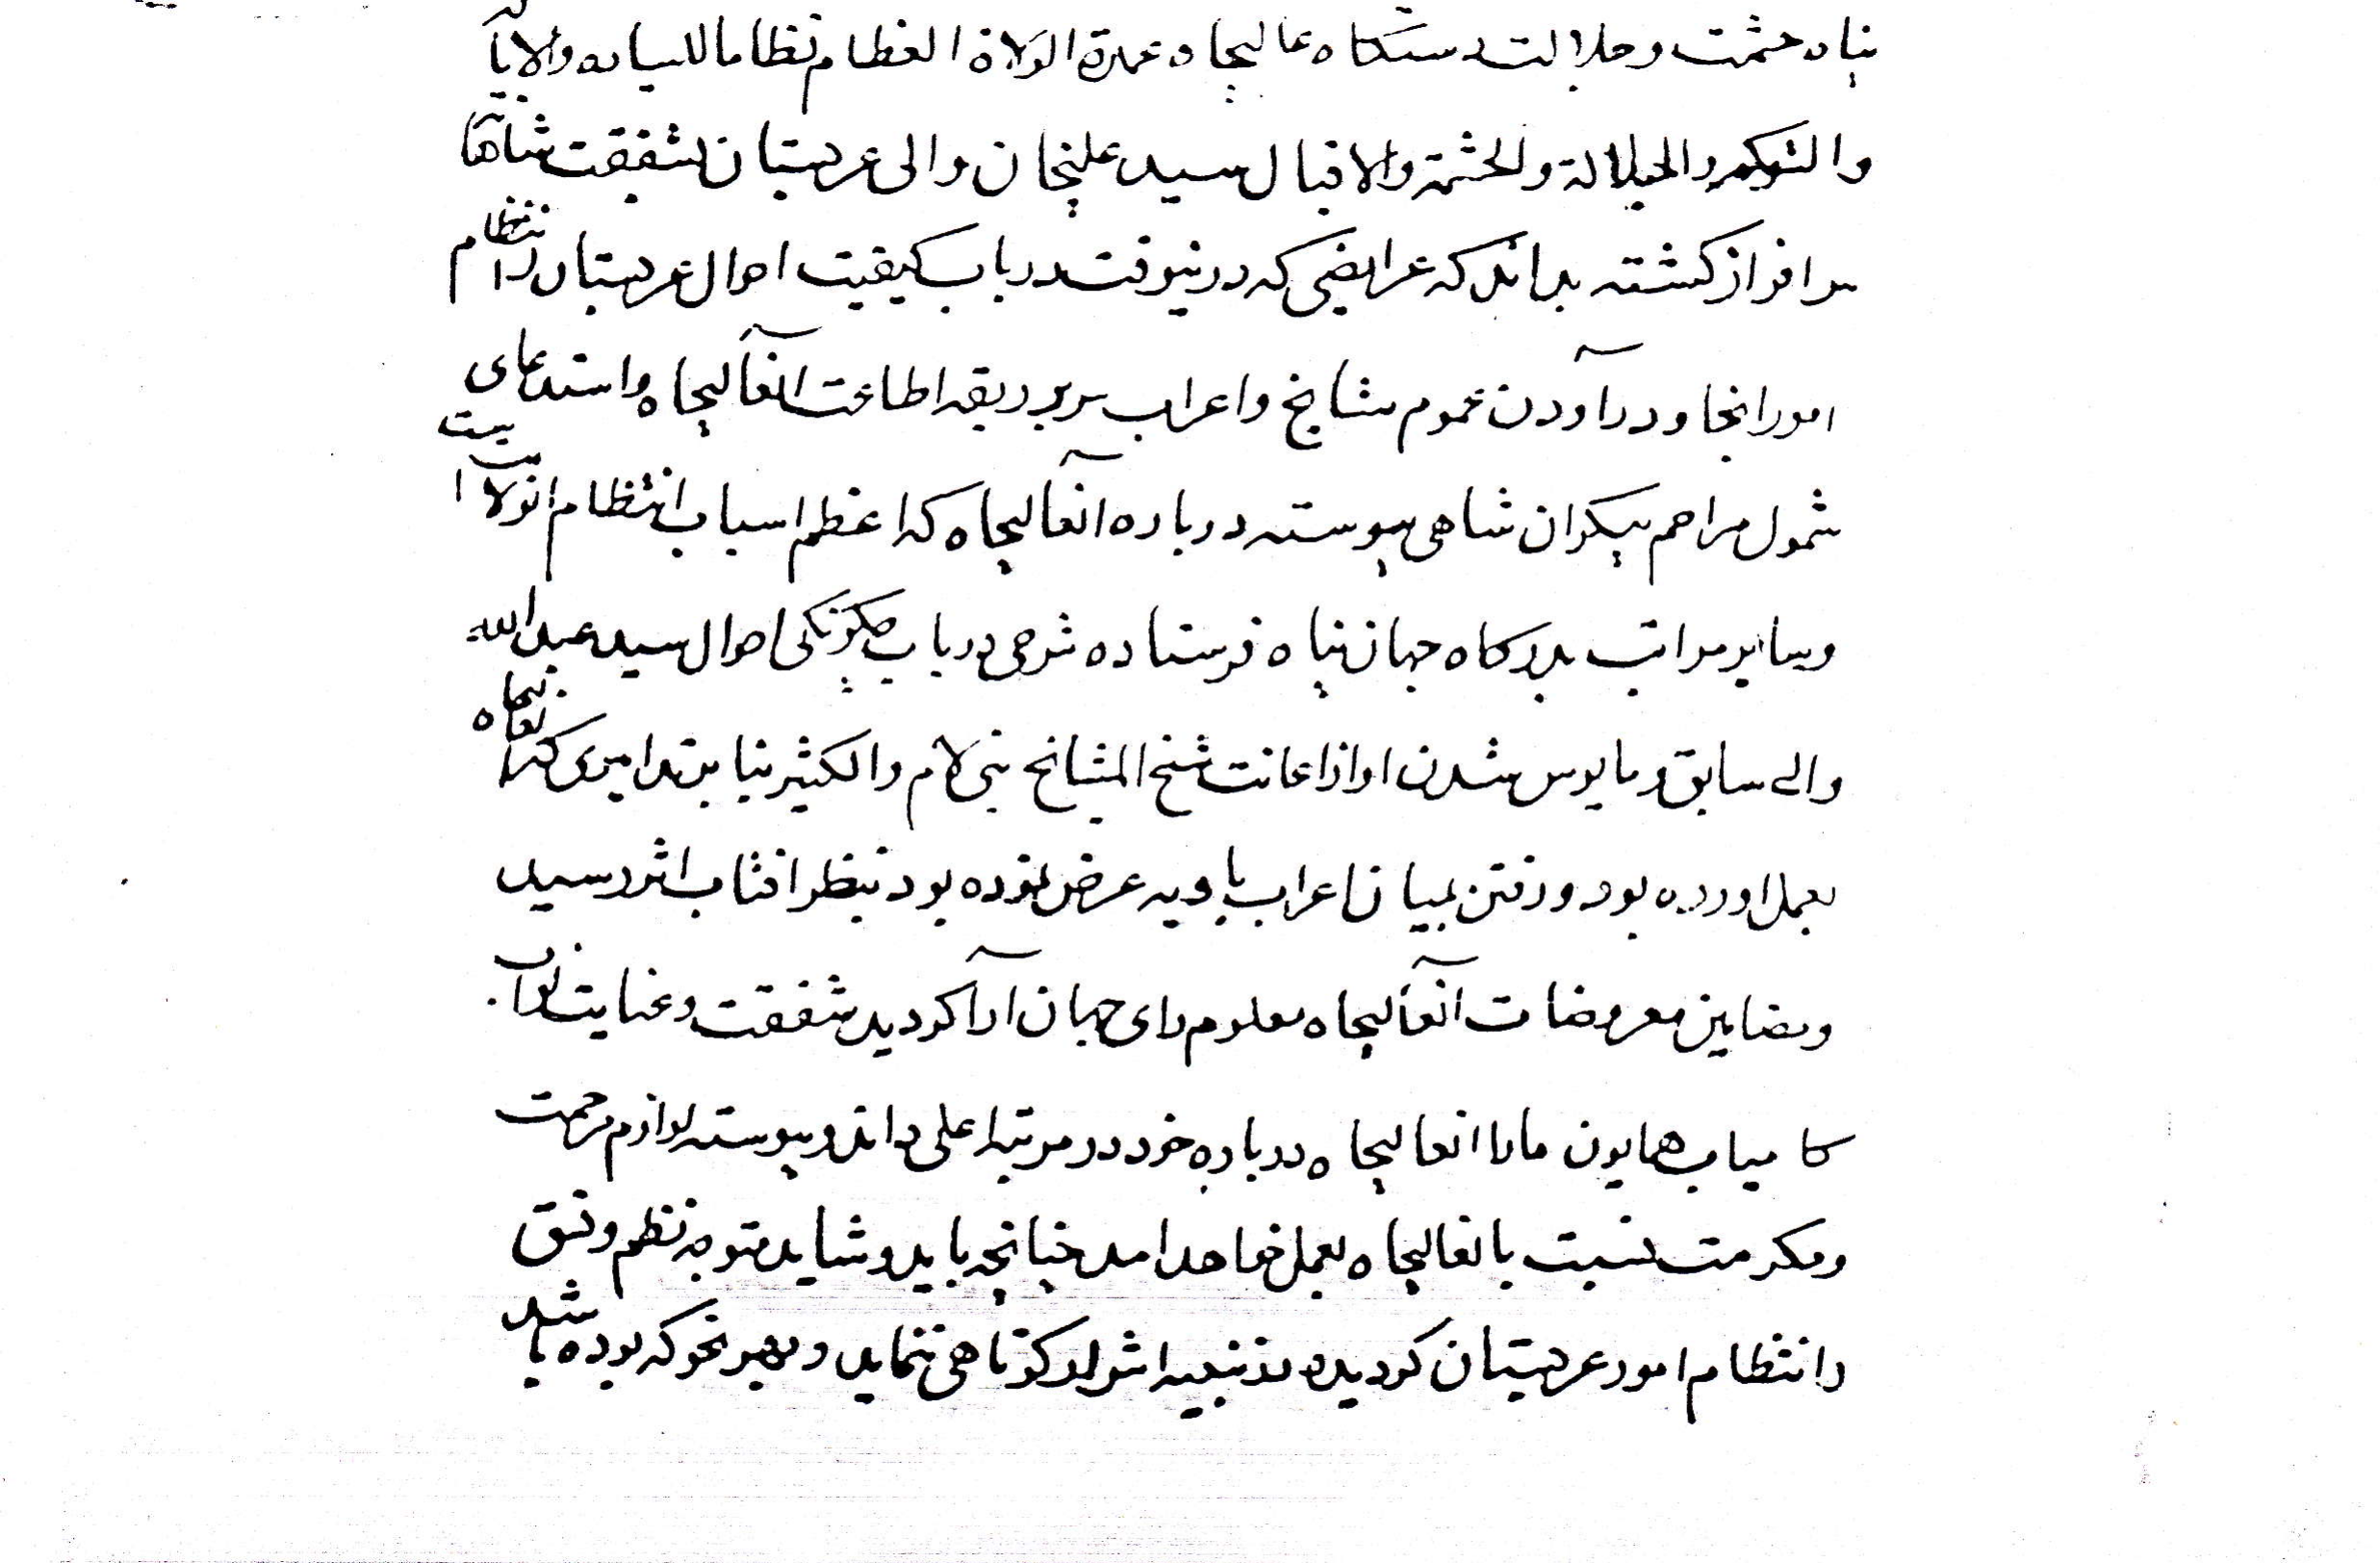 پناه حشمت و جلالت دستگاه عالیجاه عمدة الولاة العظام نظاما للسیاده والایالة
والشوکه والجلالة والحشمة والاقبال سید علیخان والی عربستان بشفقت شاهانه
سرافراز گشته بداند که عرایضی که درینوقت در باب کیفیت احوال عربستان و انتظام
امور انجا و درآوردن عموم مشایخ و اعراب سر بر ربقه اطاعت آنعالیجاه و استدعای
شمول مراحم بیکران شاهی پیوسته درباره آنعالیجاه که اعظم اسباب انتظام انولایت است
و سایر مراتب بدرگاه جهان پناه فرستاده شرحی در باب چگونگی احوال سید عبدالله
والی سابق و مایوس شدن او از اعانت شیخ المشایخ بنی لام و الکثیر بنا بر تدابیری که انعالیجاه
بعمل اورده بود و رفتن بمیان اعراب بادیه عرض نموده بود بنظر افتاب اثر رسید
و مضامین معروضات آنعالیجاه معلوم رای جهان آرا گردید شفقت و عنایت نواب
کامیاب همایون ما را انعالیجاه درباره خود در مرتبه اعلی داند و پیوسته لوازم مرحمت
و مکرمت نسبت بانعالیجاه بعمل خواهد امد چنانچه باید و شاید متوجه نظم و نسق
و انتظام امور عربستان گردیده در تنبیه اشرار کوتاهی ننماید و بهر نحو که بوده باشد